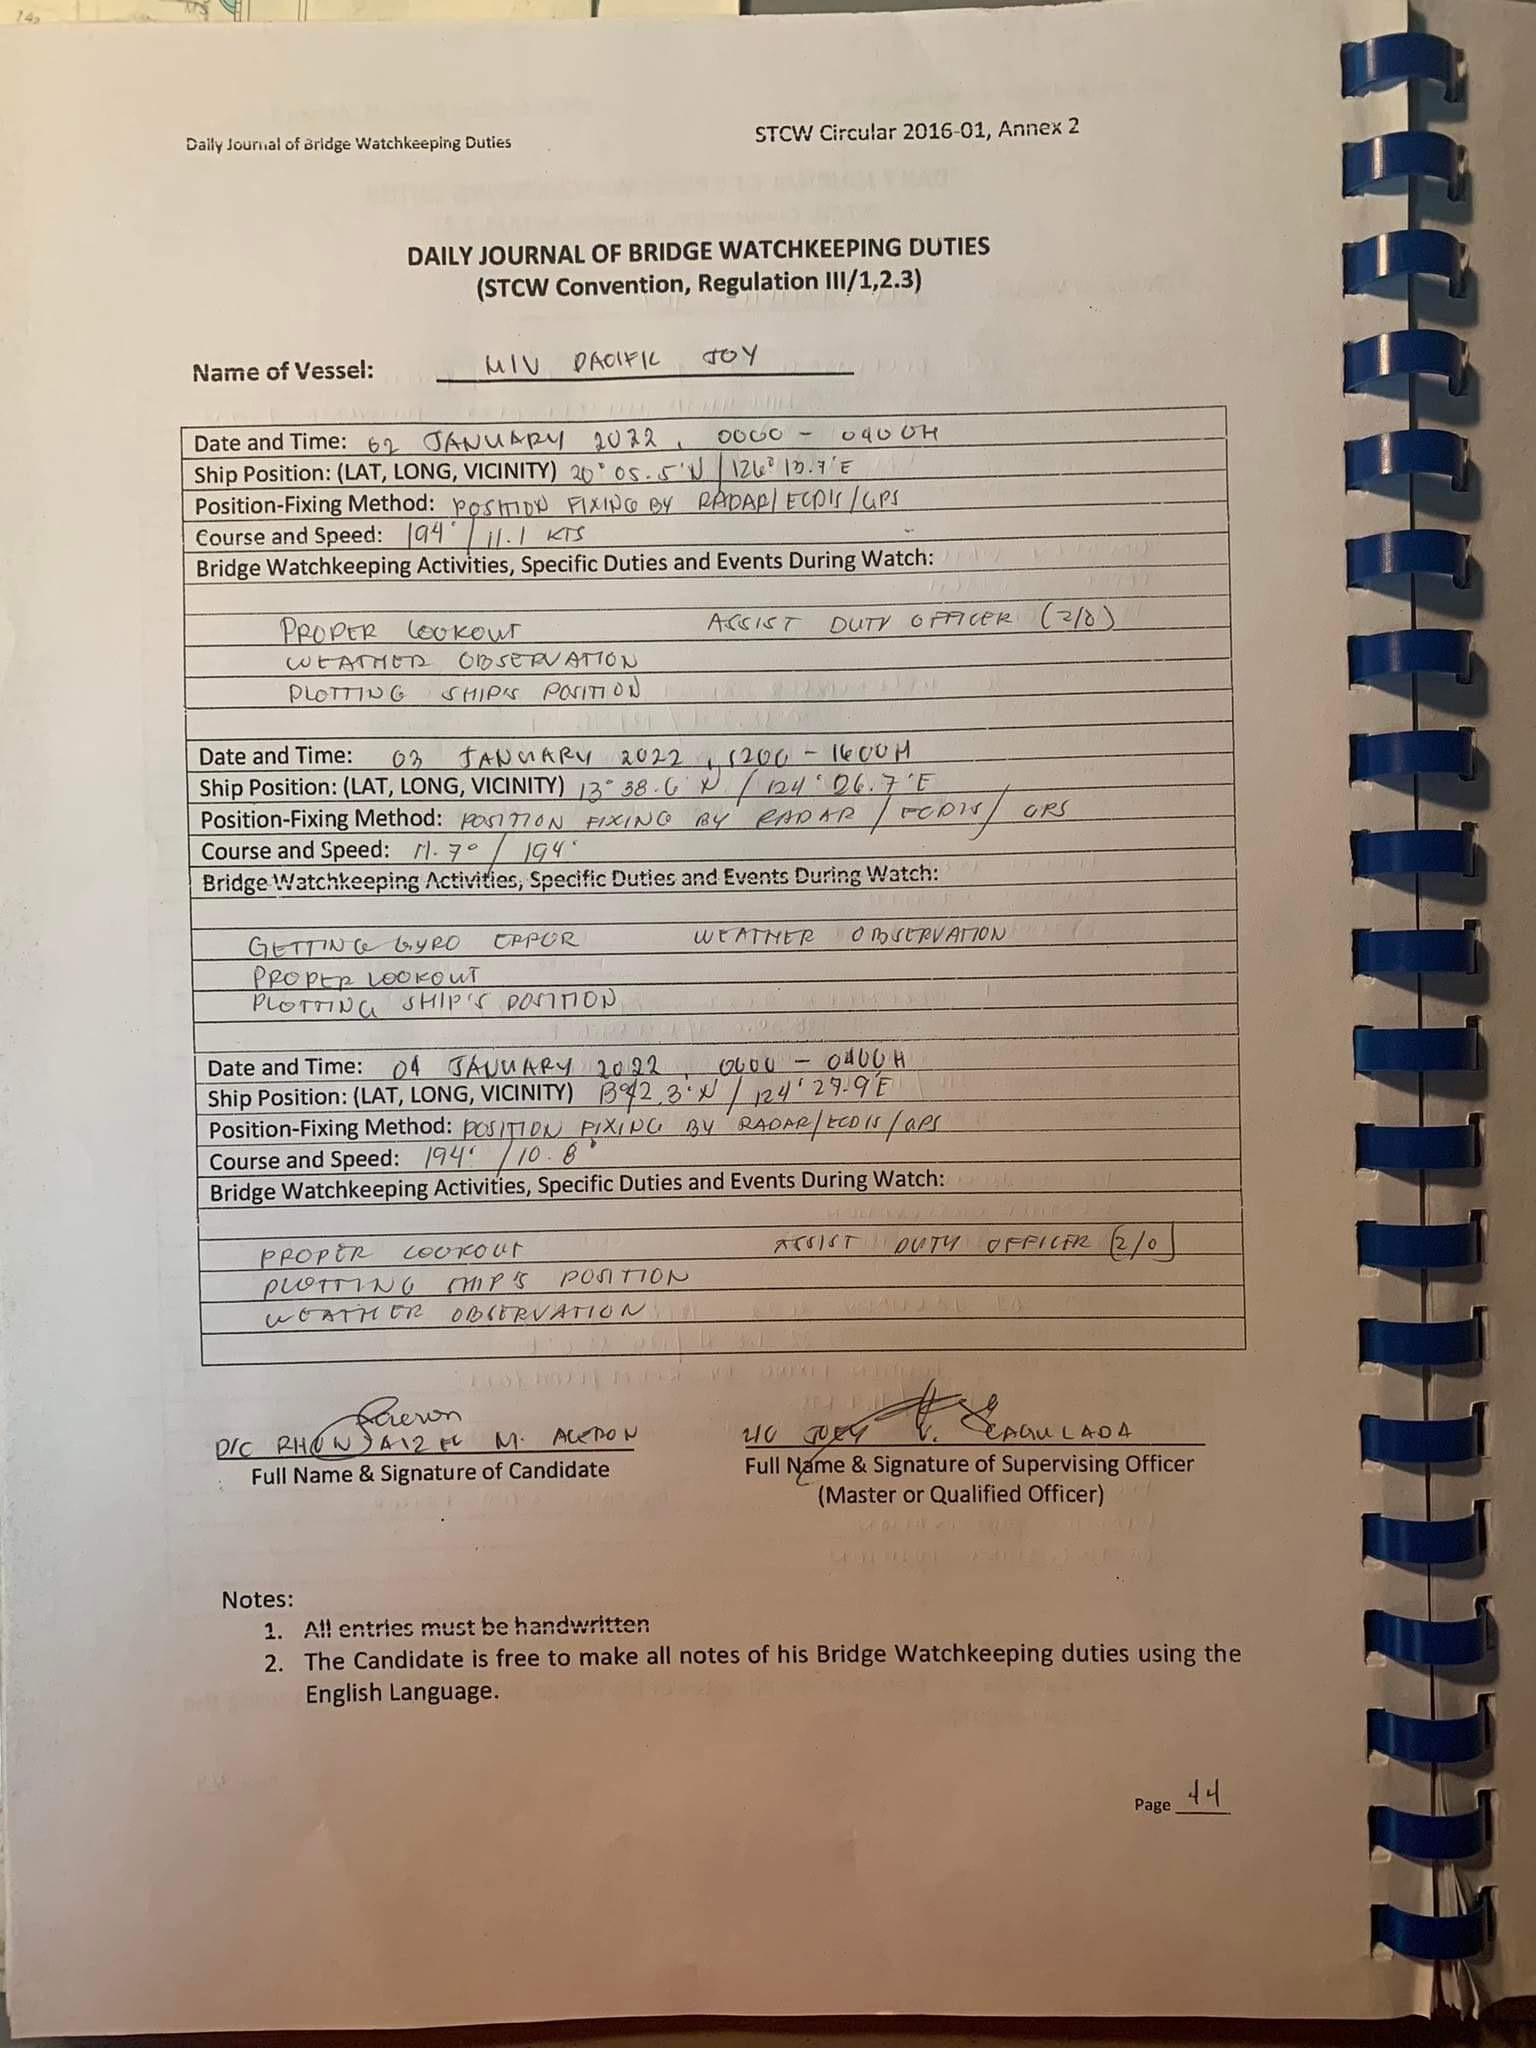 Daily Journal of Bridge Watchkeeping Duties
STCW Circular 2016-01, Annex 2
DAILY JOURNAL OF BRIDGE WATCHKEEPING DUTIES
(STCW Convention, Regulation III/1,2.3)
Name of Vessel: M/V PACIFIC JOY
Date and Time: 02 JANUARY 2022, 0000 - 0400H
Ship Position: (LAT, LONG, VICINITY) 20° 05.5'N / 126° 13.7'E
Position-Fixing Method: POSITION FIXING BY RADAR/ECDIS/GPS
Course and Speed: 194° / 11.1 KTS
Bridge Watchkeeping Activities, Specific Duties and Events During Watch:
PROPER LOOKOUT ASSIST DUTY OFFICER (2/O)
WEATHER OBSERVATION
PLOTTING SHIP'S POSITION
Date and Time: 03 JANUARY 2022, 1200 - 1600H
Ship Position: (LAT, LONG, VICINITY) 13° 38.6'N / 124° 26.7'E
Position-Fixing Method: POSITION FIXING BY RADAR / ECDIS / GPS
Course and Speed: 11.7° / 194°
Bridge Watchkeeping Activities, Specific Duties and Events During Watch:
GETTING GYRO ERROR WEATHER OBSERVATION
PROPER LOOKOUT
PLOTTING SHIP'S POSITION
Date and Time: 04 JANUARY 2022, 0000 - 0400H
Ship Position: (LAT, LONG, VICINITY) / 124° 27.9'E
Position-Fixing Method: POSITION FIXING BY RADAR/ECDIS/GPS
Course and Speed: 194° / 10.8°
Bridge Watchkeeping Activities, Specific Duties and Events During Watch:
PROPER LOOKOUT ASSIST DUTY OFFICER (2/O)
PLOTTING SHIP'S POSITION
WEATHER OBSERVATION
D/C M. ACERON
2/O JOEY V. CAGULADA
Full Name & Signature of Candidate
Full Name & Signature of Supervising Officer
(Master or Qualified Officer)
Notes:
1. All entries must be handwritten
2. The Candidate is free to make all notes of his Bridge Watchkeeping duties using the
English Language.
Page 44